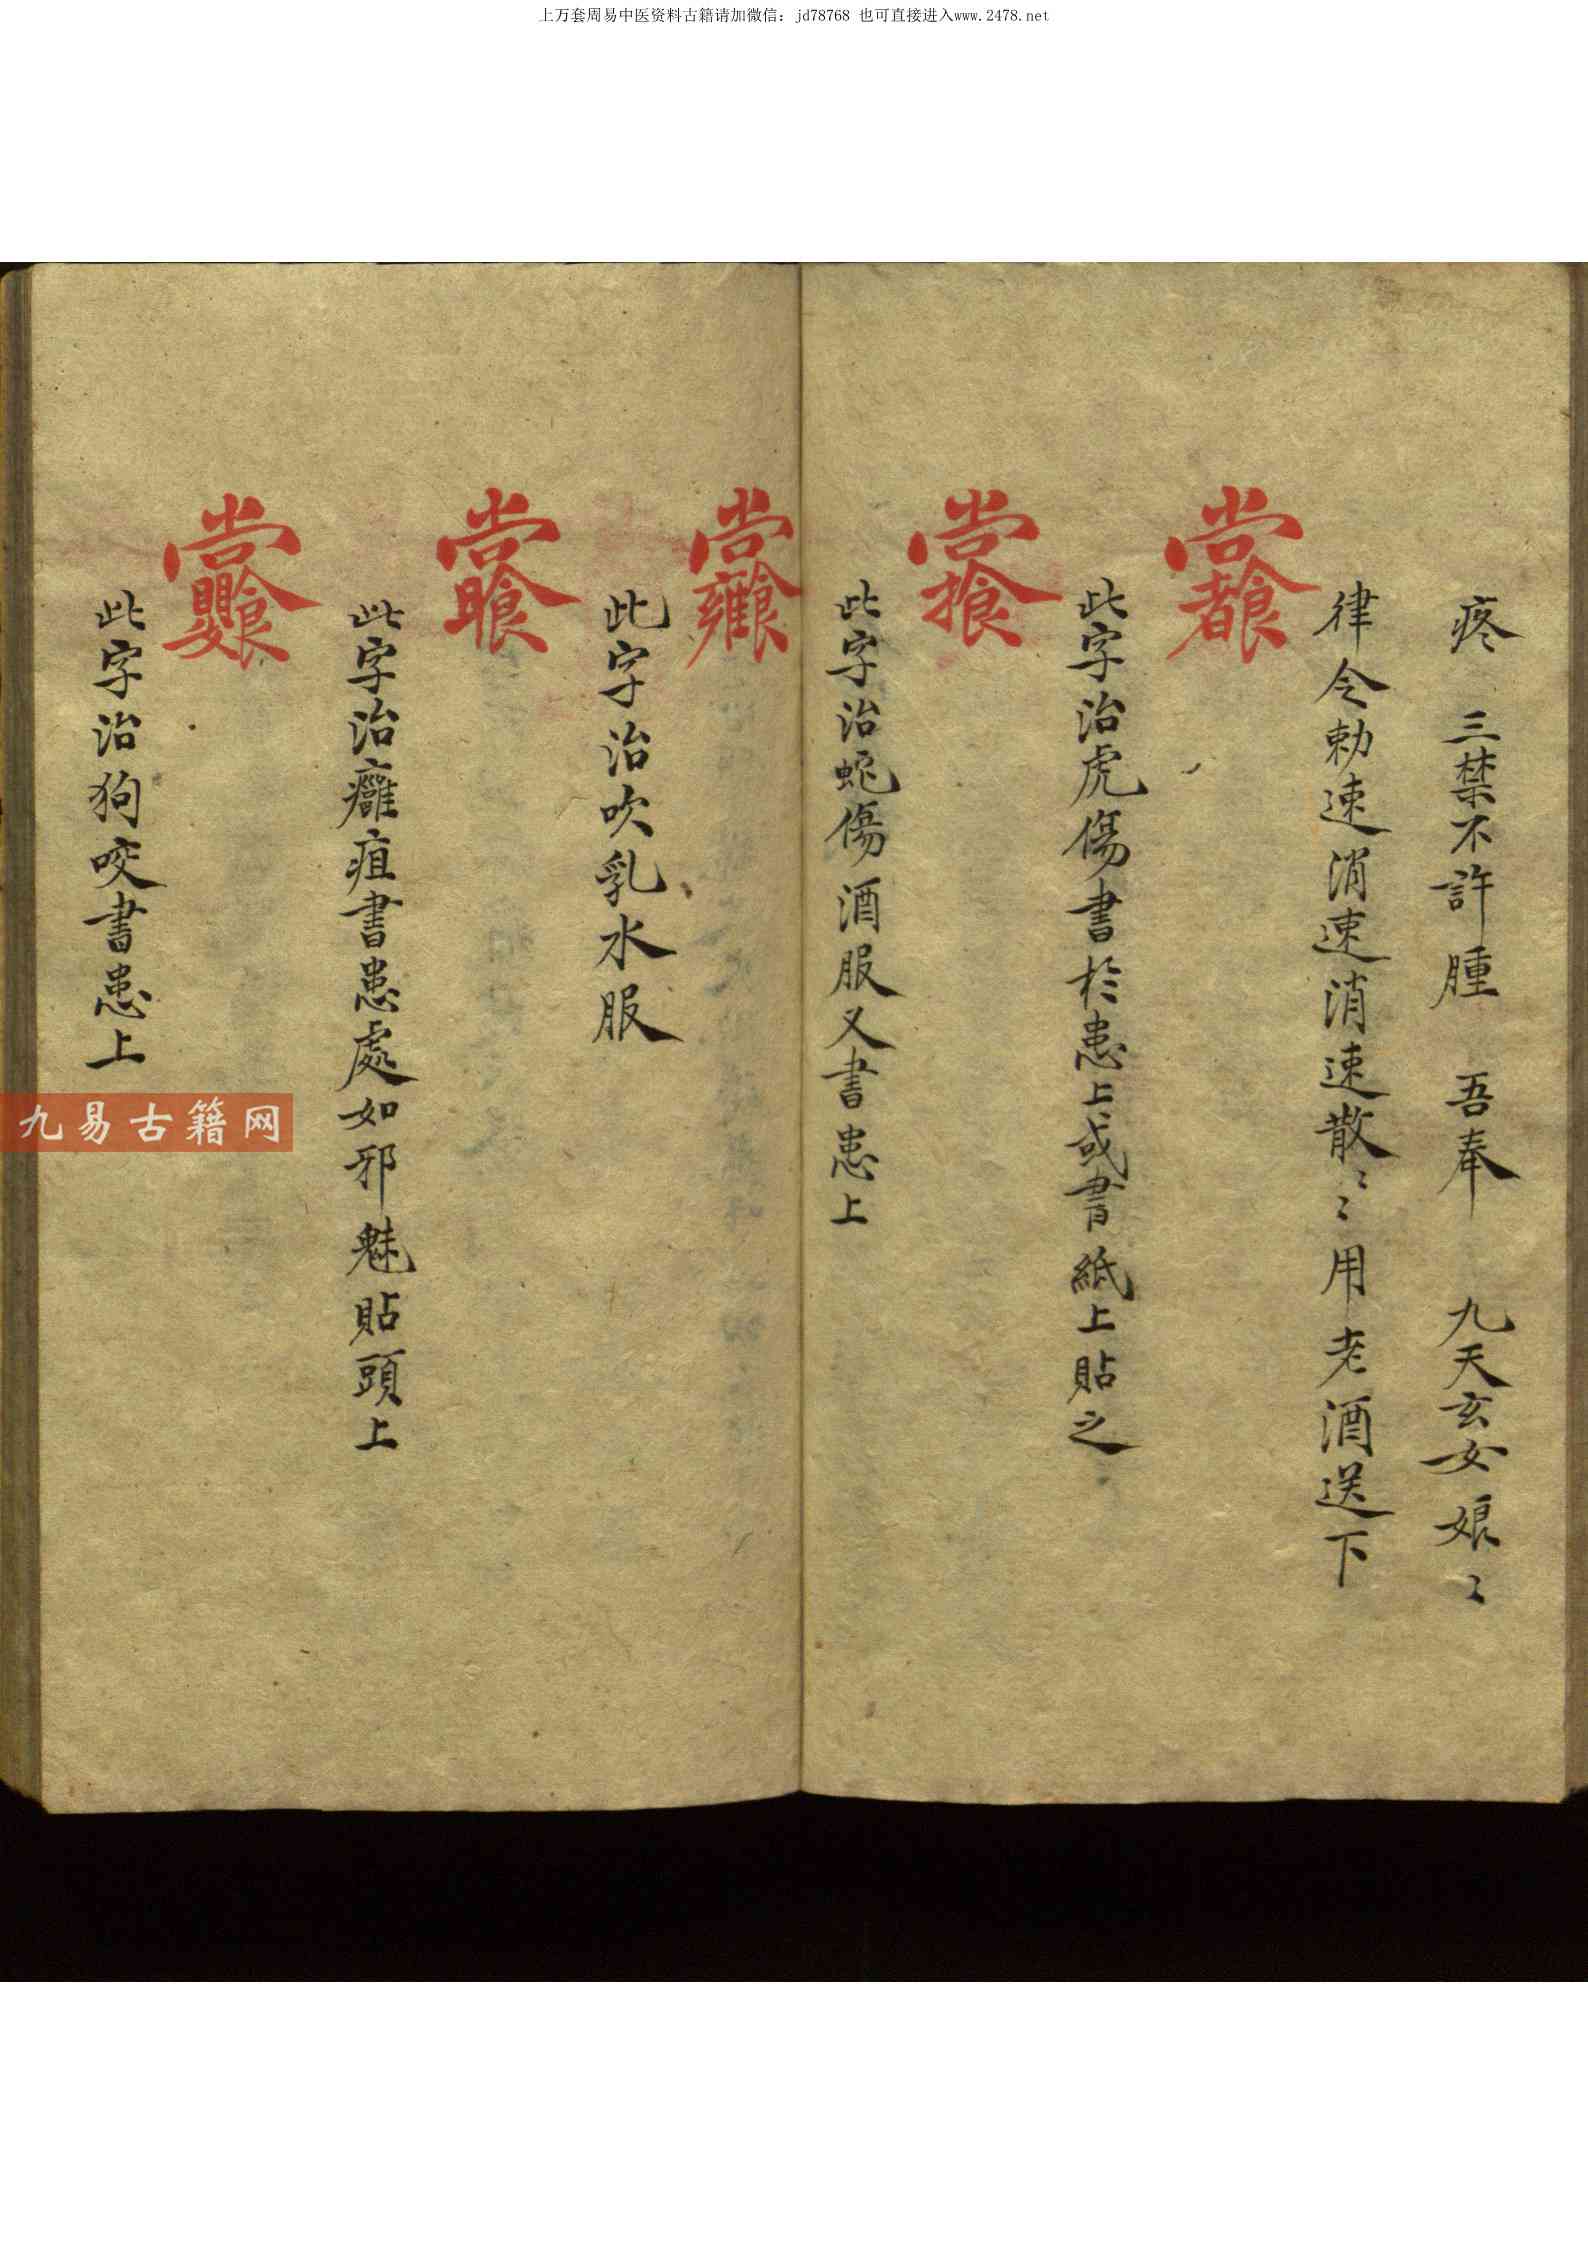 上万套周易中医资料古籍请加微信：jd78768 也可直接进入www.2478.net
疼 三禁不許腫 吾奉 九天玄女娘〻
律令勅速消速消速散〻〻用老酒送下
此字治虎傷書於患上或書紙上貼之
此字治蛇傷酒服又書患上
此字治吹乳水服
此字治癰疽書患處如邪魅貼頭上
此字治狗咬書患上
九易古籍网